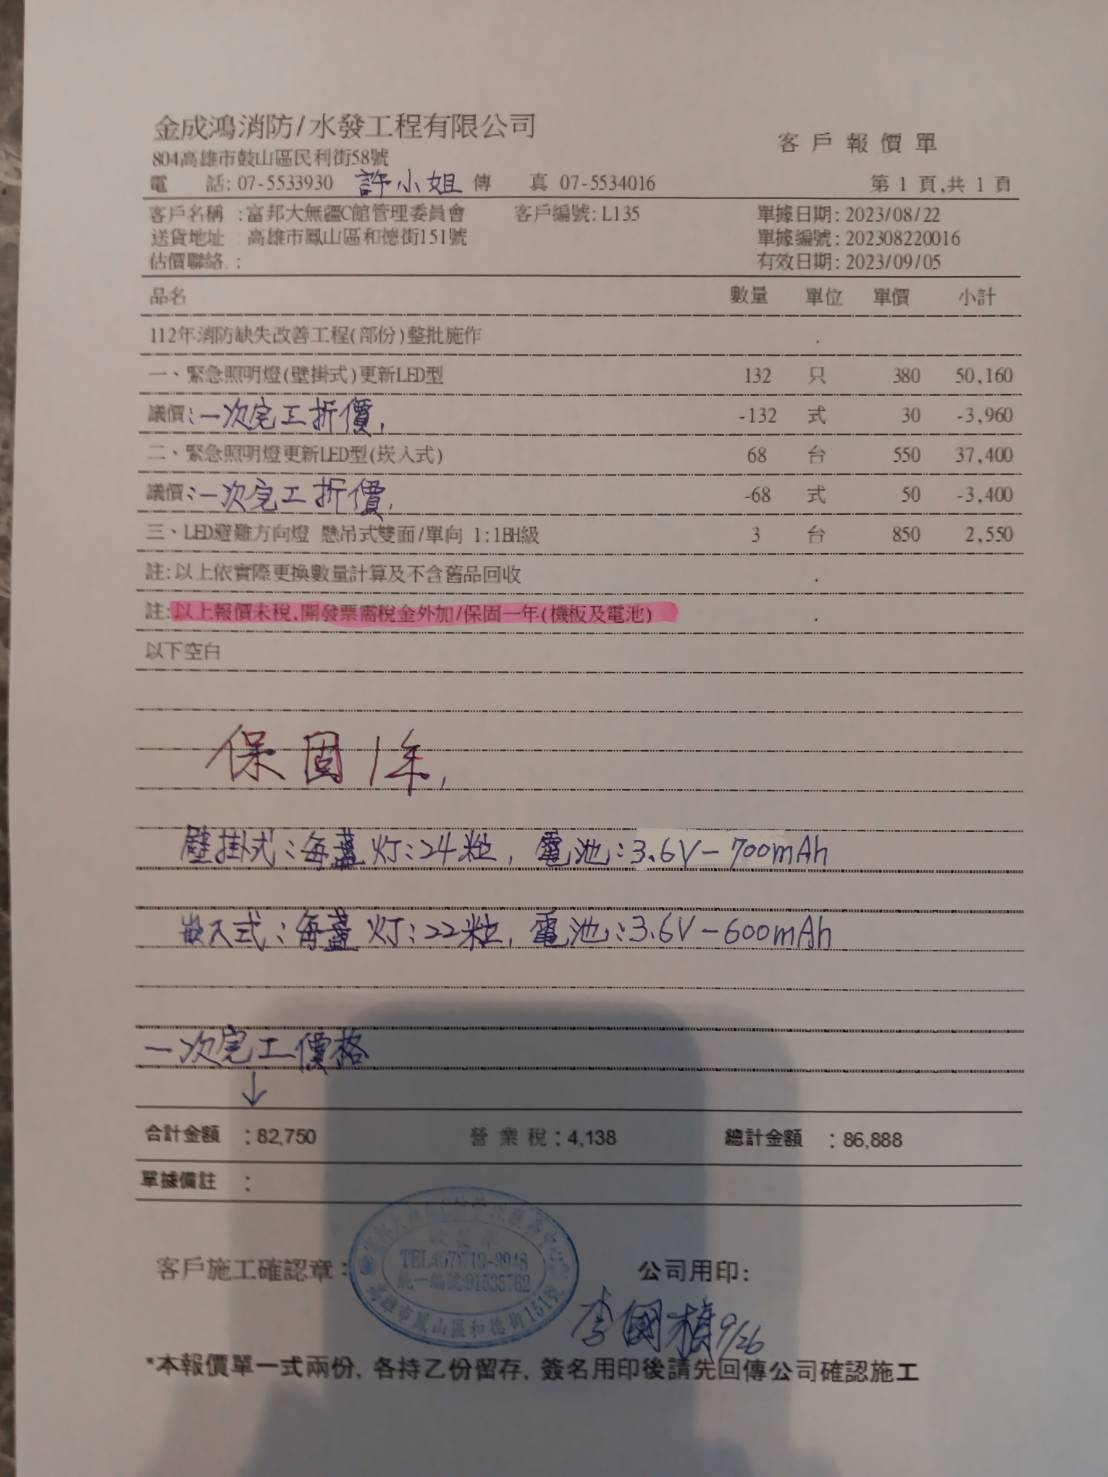 金成鴻消防/水發工程有限公司
客戶報價單
804高雄市鼓山區民利街58號
電 話: 07-5533930 許小姐 傳 真 07-5534016
第 1 頁,共 1 頁
客戶名稱 :富邦大無疆C館管理委員會 客戶編號: L135 單據日期: 2023/08/22
送貨地址 高雄市鳳山區和德街151號 單據編號: 202308220016
估價聯絡 : 有效日期: 2023/09/05
品名 數量 單位 單價 小計
112年消防缺失改善工程(部份)整批施作 .
一、緊急照明燈(壁掛式)更新LED型 132 只 380 50,160
議價:一次完工折價, -132 式 30 -3,960
二、緊急照明燈更新LED型(崁入式) 68 台 550 37,400
議價:一次完工折價, -68 式 50 -3,400
三、LED避難方向燈 懸吊式雙面/單向 1:1BH級 3 台 850 2,550
註:以上依實際更換數量計算及不含舊品回收 .
註:以上報價未稅,開發票需稅金外加/保固一年(機板及電池) .
以下空白
保固1年,
壁掛式:每盞灯:24粒, 電池:3.6V-700mAh
嵌入式:每盞灯:22粒, 電池:3.6V-600mAh
一次完工價格
↓
合計金額 :82,750 營業稅:4,138 總計金額 :86,888
單據備註 :
客戶施工確認章:
TEL:(07)719-8948
統一編號:91535762
高雄市鳳山區和德街151號
公司用印:
李國楨9/26
*本報價單一式兩份, 各持乙份留存, 簽名用印後請先回傳公司確認施工